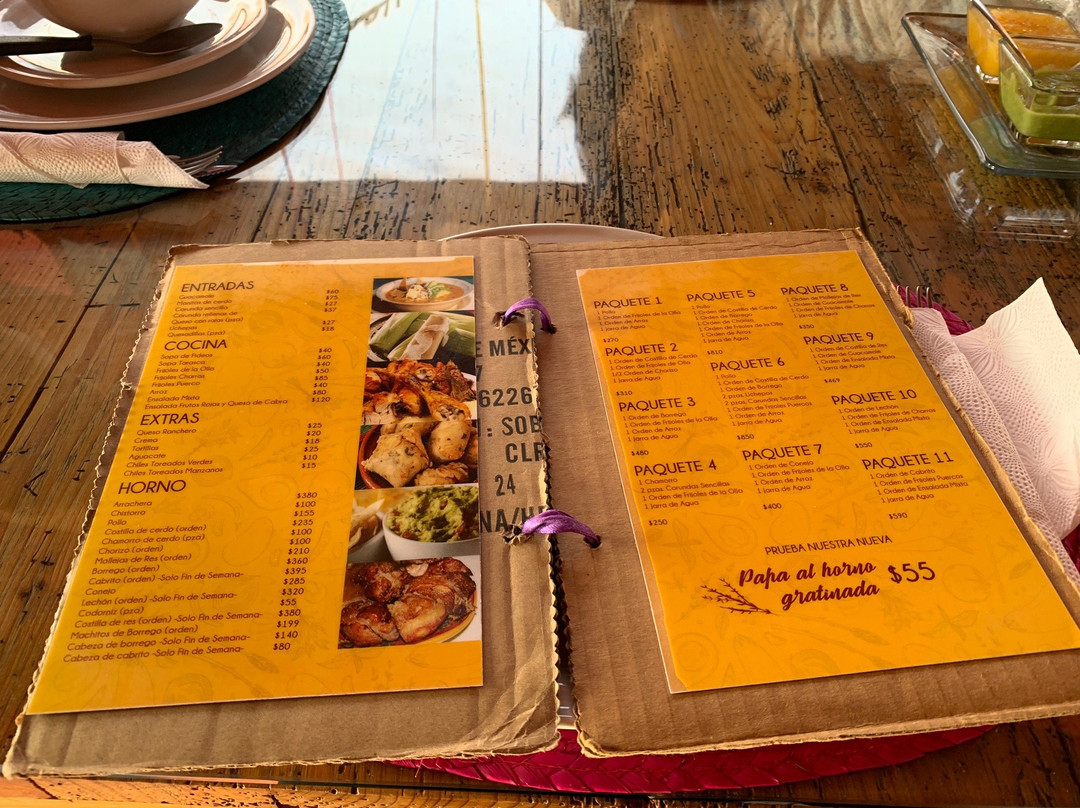 ENTRADAS
Guacamole $60
$75
Corunda sencilla $27
Corunda rellena de $37
Queso con rajas (pza)
Uchepos $27
Quesadillas (pza) $18
COCINA
Sopa de Fideos $40
Sopa Tarasca $60
Frijoles de la Olla $40
Frijoles Charros $50
Frijoles Puerco $85
Arroz $40
Ensalada Mixta $80
Ensalada Frutos Rojos y Queso de Cabra $120
EXTRAS
Queso Ranchero $25
Crema $20
Tortillas $18
Aguacate $25
Chiles Toreados Verdes $10
Chiles Toreados Manzanos $15
HORNO
Arrachera $380
Chistorra $100
Pollo $155
Costilla de cerdo (orden) $235
Chamorro de cerdo (pza) $100
Chorizo (orden) $100
Mollejas de Res (orden) $210
Borrego (orden) $360
Cabrito (orden) -Solo Fin de Semana- $395
Conejo $285
Lechón (orden) -Solo Fin de Semana- $320
Codorniz (pza) $55
Costilla de res (orden) -Solo Fin de Semana- $380
Machitos de Borrego (orden) $199
Cabeza de borrego -Solo Fin de Semana- $140
Cabeza de cabrito -Solo Fin de Semana- $80
E MÉX
7
6226
: SOB
CLR
24
NA/H
PAQUETE 1
1 Pollo
1 Orden de Frijoles de la Olla
1 Orden de Arroz
1 Jarra de Agua
$270
PAQUETE 2
1 Orden de Costilla de Cerdo
1 Orden de Frijoles de la Olla
1/2 Orden de Chorizo
1 Jarra de Agua
$310
PAQUETE 3
1 Orden de Borrego
1 Orden de Frijoles de la Olla
1 Orden de Arroz
1 Jarra de Agua
$480
PAQUETE 4
1 Chamorro
2 pzas. Corundas Sencillas
1 Orden de Frijoles de la Olla
1 Jarra de Agua
$250
PAQUETE 5
1 Pollo
1 Orden de Costilla de Cerdo
1 Orden de Borrego
1 Orden de Chorizo
1 Orden de Frijoles de la Olla
1 Jarra de Agua
$810
PAQUETE 6
1 Pollo
1 Orden de Costilla de Cerdo
1 Orden de Borrego
2 pzas Uchepos
2 pzas Corundas Sencillas
1 Orden de Frijoles Puercos
1 Orden de Arroz
1 Jarra de Agua
$850
PAQUETE 7
1 Orden de Conejo
1 Orden de Frijoles de la Olla
1 Orden de Arroz
1 Jarra de Agua
$400
PAQUETE 8
1 Orden de Mollejas de Res
1 Orden de Guacamole
1 Orden de Frijoles de Charros
1 Jarra de Agua
$350
PAQUETE 9
1 Orden de Costilla de Res
1 Orden de Guacamole
1 Orden de Ensalada Mixta
1 Jarra de Agua
$469
PAQUETE 10
1 Orden de Lechón
1 Orden de Frijoles de Charros
1 Orden de Ensalada Mixta
1 Jarra de Agua
$550
PAQUETE 11
1 Orden de Cabrito
1 Orden de Frijoles Puercos
1 Orden de Ensalada Mixta
1 Jarra de Agua
$590
PRUEBA NUESTRA NUEVA
Papa al horno
gratinada $55